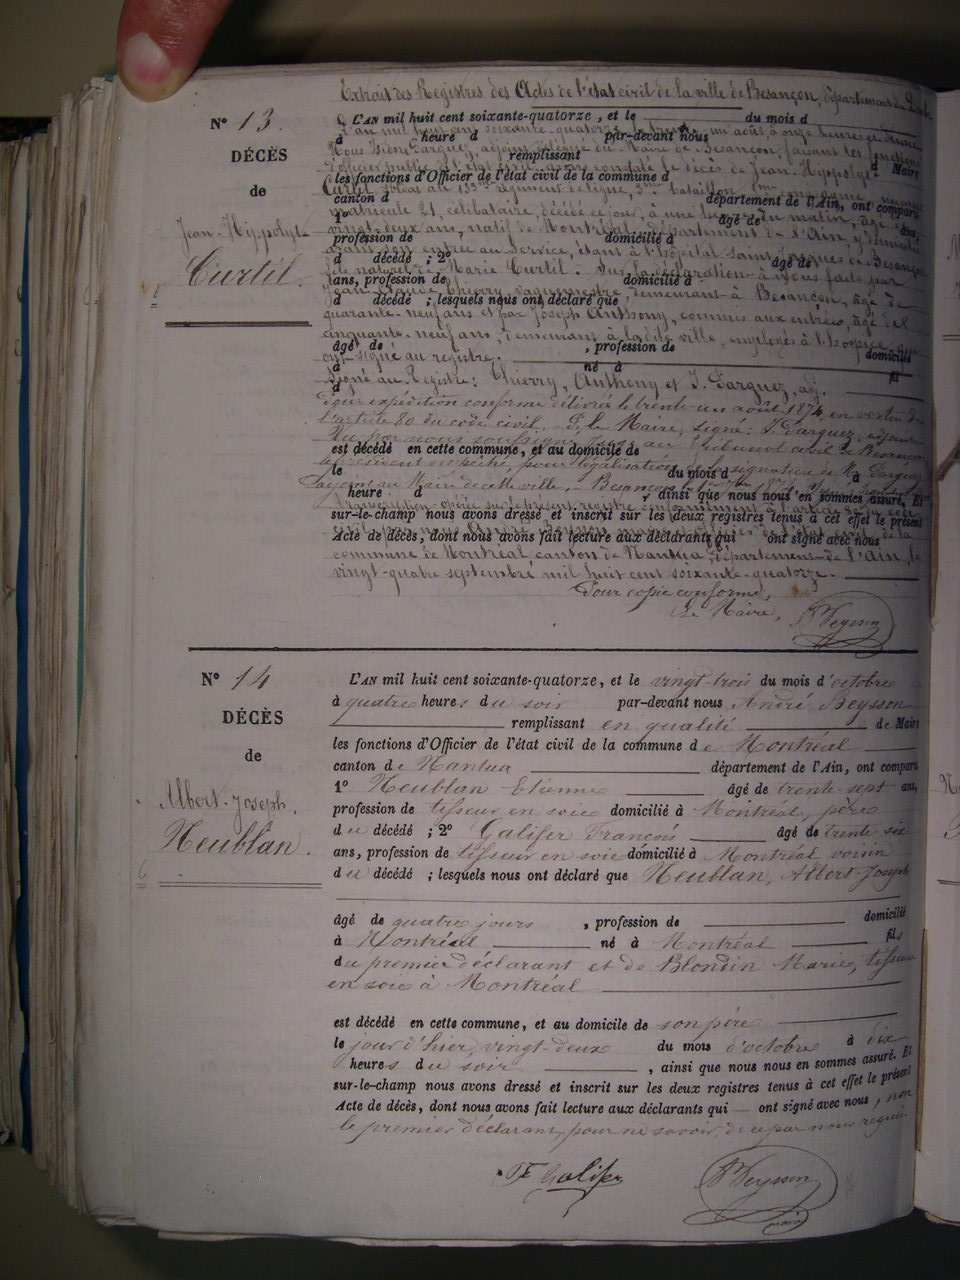 Extrait des Registres des Actes de l'état civil de la ville de Besançon, département du Doubs
N° 13.
DÉCÈS
de
Jean-Hippolyte
Curtil.
L'AN mil huit cent soixante-quatorze, et le du mois d
à heure d par-devant nous
L'an mil huit cent soixante-quatorze, août, à onze heures
adjoint délégué du Maire de Besançon, faisant les fonctions
remplissant Maire
d'officier public de l'état civil, avons constaté le décès de Jean-Hyppolyte
les fonctions d'Officier de l'état civil de la commune d
Curtil, soldat au régiment de ligne, bataillon, compagnie, numéro
canton d département de l'Ain, ont comparu
matricule 21, célibataire, décédé ce jour, à une heure du matin, âgé de
1° âgé de ans,
vingt-deux ans, natif de Montréal, département de l'Ain, y domicilié
profession de domicilié à
avant son entrée au service, étant à l'hôpital Saint-Jacques de Besançon
d décédé ; 2° âgé de
fils naturel de Marie Curtil. Sur la déclaration à nous faite par
ans, profession de domicilié à
Jean Claude Thierry, demeurant à Besançon, âgé de
d décédé ; lesquels nous ont déclaré que
quarante-neuf ans et par Joseph Anthony, commis aux entrées, âgé de
cinquante-neuf ans, demeurant à la dite ville, employés à l'hospice, qui
âgé de , profession de domicilié
ont signé au registre.
à né à fil
Signé au Registre : Thierry, Anthony et
d
Pour expédition conforme délivrée le trente-un août 1874, en vertu de
l'article 80 du code civil. P. le Maire, signé :
est décédé en cette commune, et au domicile de
le du mois d à
heure d , ainsi que nous nous en sommes assuré. Et
sur-le-champ nous avons dressé et inscrit sur les deux registres tenus à cet effet le présent
Acte de décès, dont nous avons fait lecture aux déclarants qui ont signé avec nous
commune de Montréal canton de Nantua, département de l'Ain, le
vingt-quatre septembre mil huit cent soixante-quatorze.
Pour copie conforme,
Le Maire,
Beysson
N° 14
DÉCÈS
de
Albert-Joseph.
Neublan.
L'AN mil huit cent soixante-quatorze, et le vingt-trois du mois d'octobre
à quatre heures du soir par-devant nous André Beysson
remplissant en qualité de Maire
les fonctions d'Officier de l'état civil de la commune de Montréal
canton de Nantua département de l'Ain, ont comparu
1° Neublan Etienne âgé de trente-sept ans,
profession de tisseur en soie domicilié à Montréal, père
du décédé ; 2° Galifer François âgé de trente six
ans, profession de tisseur en soie domicilié à Montréal voisin
du décédé ; lesquels nous ont déclaré que Neublan, Albert-Joseph
âgé de quatre jours , profession de domicilié
à Montréal né à Montréal fils
du premier déclarant et de Blondin Marie, tisseuse
en soie à Montréal
est décédé en cette commune, et au domicile de son père
le jour d'hier, vingt-deux du mois d'octobre à dix
heures du soir , ainsi que nous nous en sommes assuré. Et
sur-le-champ nous avons dressé et inscrit sur les deux registres tenus à cet effet le présent
Acte de décès, dont nous avons fait lecture aux déclarants qui — ont signé avec nous, non
le premier déclarant, pour ne savoir, de ce par nous requis
F Galifer
Beysson
maire